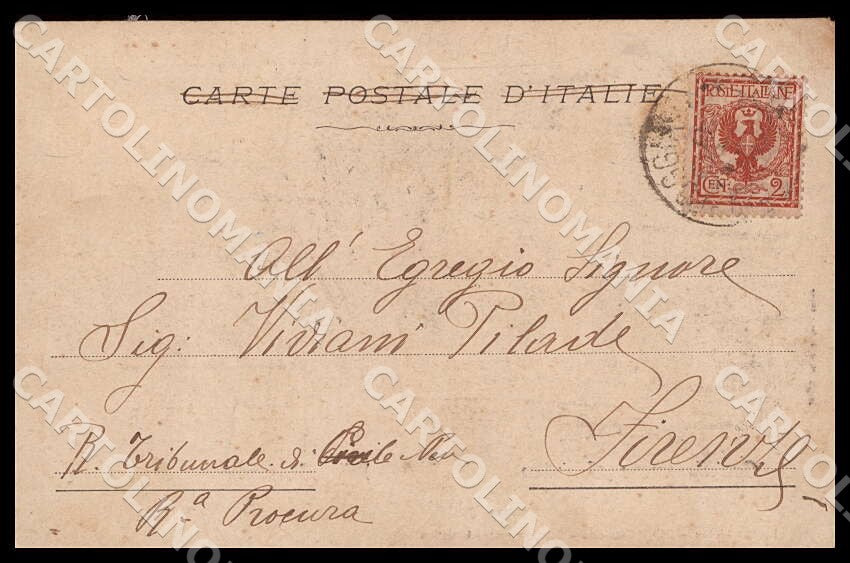 CARTE POSTALE D'ITALIE
POSTE ITALIANE
CEN. 2
All' Egregio Signore
Sig: Viviani Pilade
Firenze
R. Tribunale di
Rª Procura
CARTOLINOMANIA
CARTOLINOMANIA
CARTOLINOMANIA
CARTOLINOMANIA
CARTOLINOMANIA
CARTOLINOMANIA